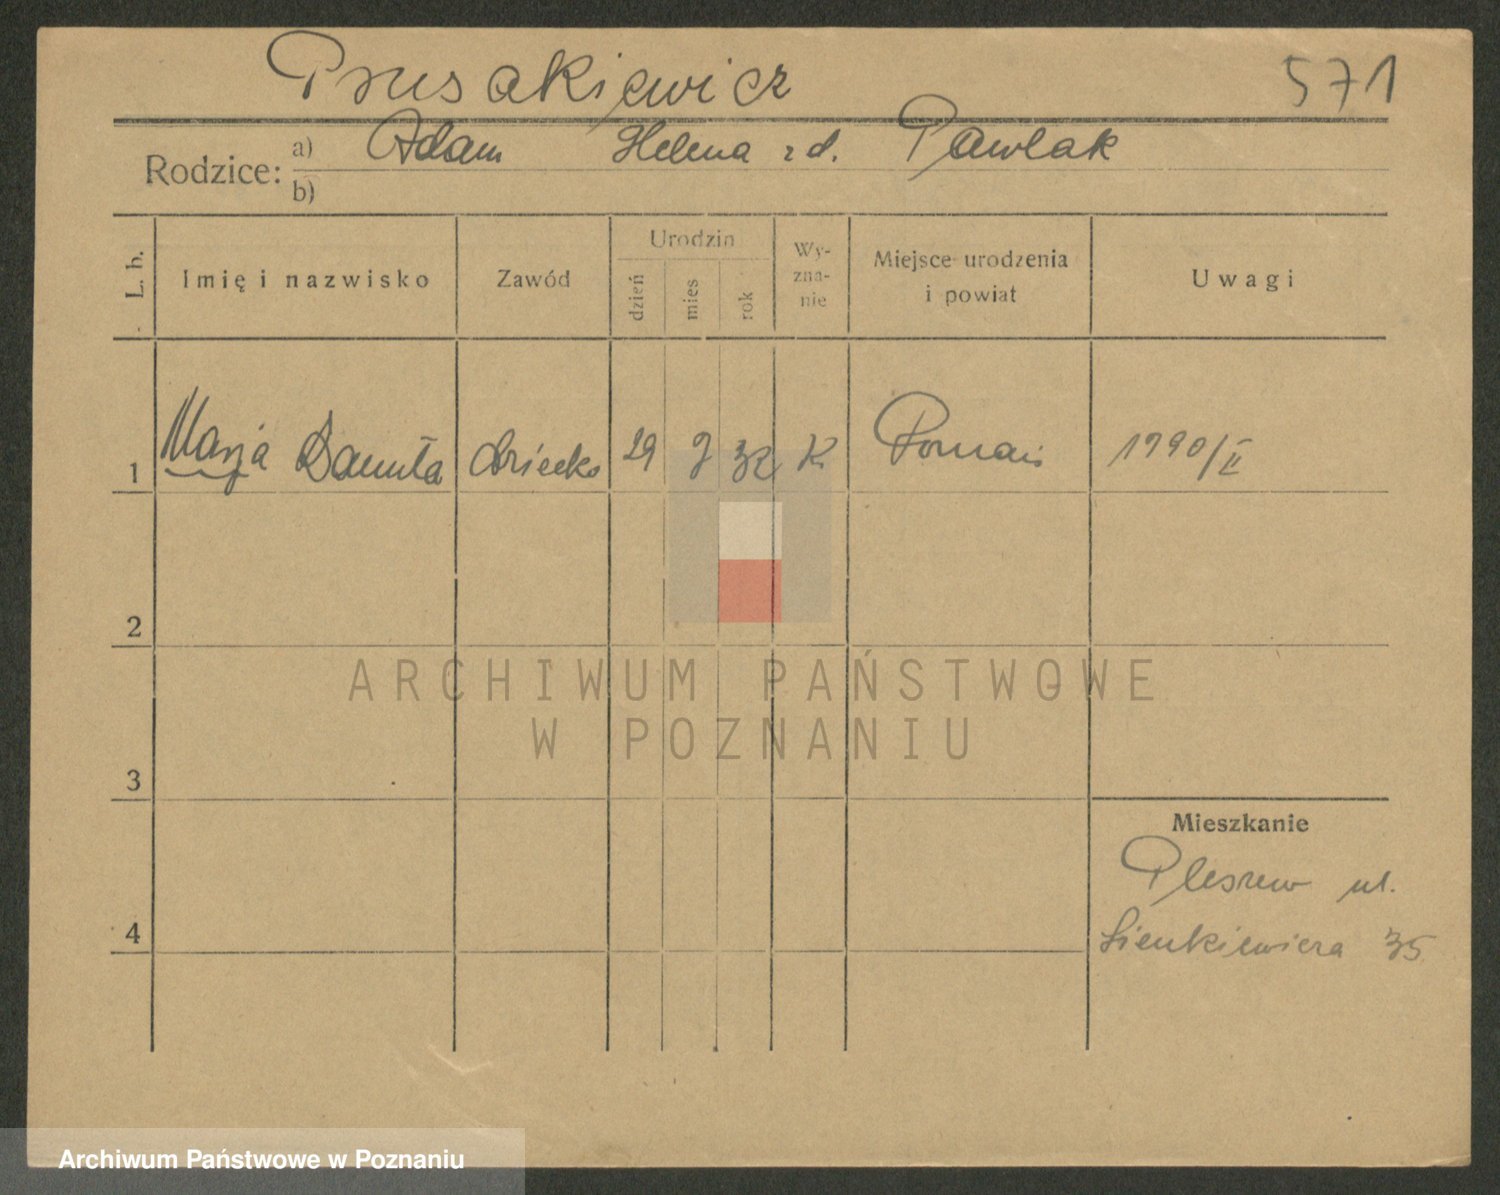 Prusakiewicz 571
Rodzice: a) Adam Helena zd. Pawlak
b)
L. b. Imię i nazwisko Zawód Urodzin dzień mies rok Wy-zna-nie Miejsce urodzenia i powiat Uwagi
1 Marja Danuta dziecko 29 9 32 K Poznań 1990/II
2
ARCHIWUM PAŃSTWOWE
W POZNANIU
3
Mieszkanie
Pleszew ul.
4 Sienkiewicza 35
Archiwum Państwowe w Poznaniu